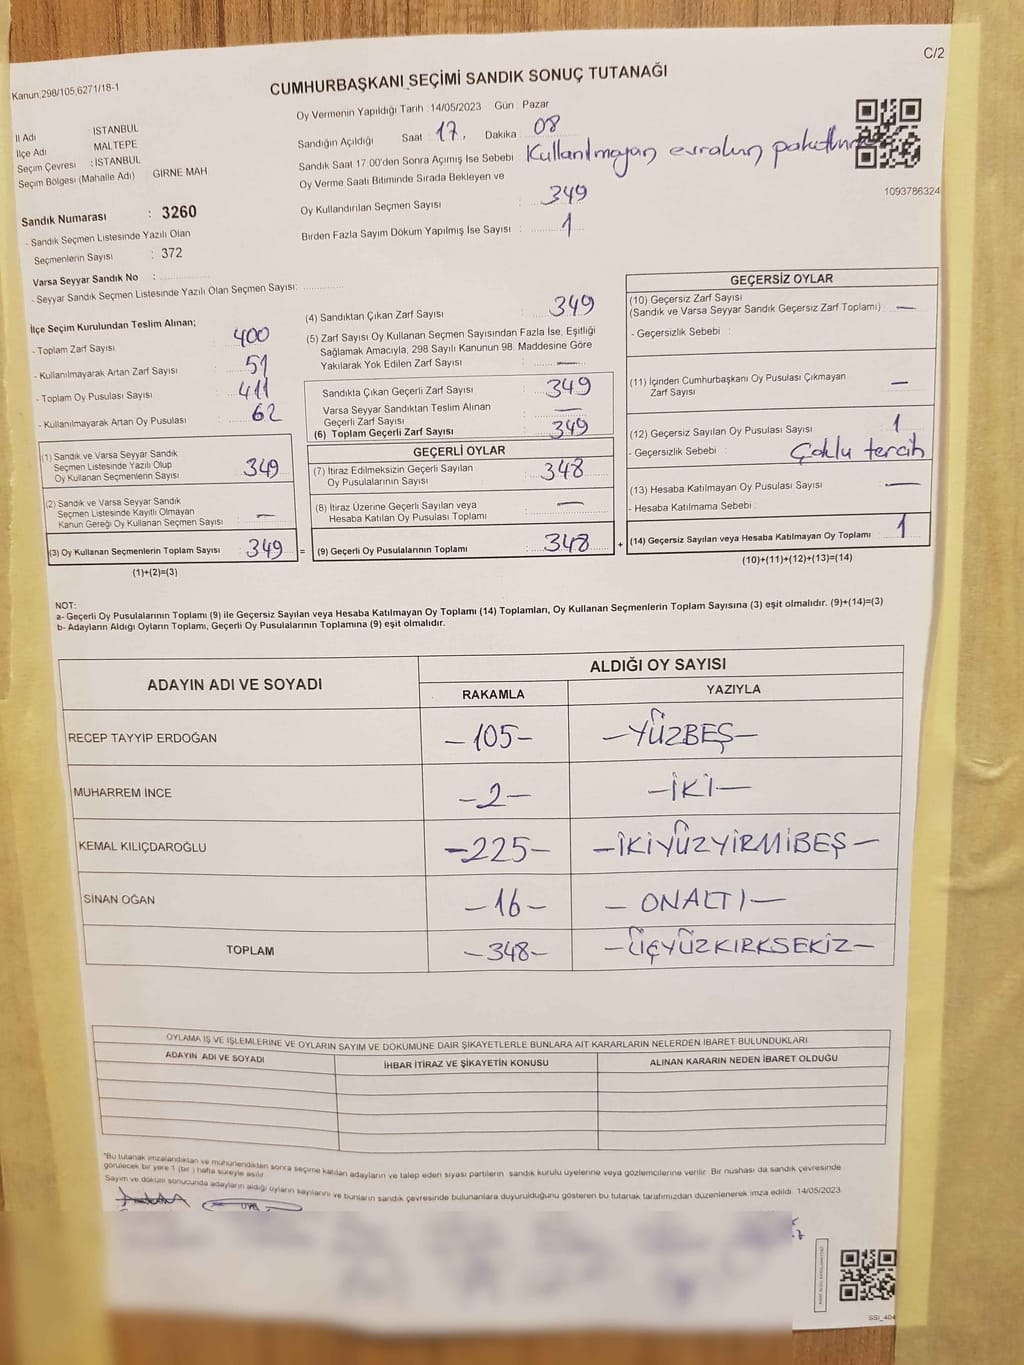 C/2
Kanun:298/105,6271/18-1
CUMHURBAŞKANI SEÇİMİ SANDIK SONUÇ TUTANAĞI
İl Adı : İSTANBUL
İlçe Adı : MALTEPE
Seçim Çevresi : İSTANBUL
Seçim Bölgesi (Mahalle Adı) GİRNE MAH
Sandık Numarası : 3260
- Sandık Seçmen Listesinde Yazılı Olan
Seçmenlerin Sayısı : 372
Varsa Seyyar Sandık No :
- Seyyar Sandık Seçmen Listesinde Yazılı Olan Seçmen Sayısı:
Oy Vermenin Yapıldığı Tarih : 14/05/2023 Gün : Pazar
Sandığın Açıldığı Saat : 17. Dakika : 08
Sandık Saat 17:00'den Sonra Açımış İse Sebebi : Kullanılmayan evrakın
Oy Verme Saati Bitiminde Sırada Bekleyen ve
Oy Kullandırılan Seçmen Sayısı : 349
Birden Fazla Sayım Döküm Yapılmış İse Sayısı : 1
1093786324
İlçe Seçim Kurulundan Teslim Alınan;
- Toplam Zarf Sayısı : 400
- Kullanılmayarak Artan Zarf Sayısı : 51
- Toplam Oy Pusulası Sayısı : 411
- Kullanılmayarak Artan Oy Pusulası : 62
(1) Sandık ve Varsa Seyyar Sandık
Seçmen Listesinde Yazılı Olup
Oy Kullanan Seçmenlerin Sayısı : 349
(2) Sandık ve Varsa Seyyar Sandık
Seçmen Listesinde Kayıtlı Olmayan
Kanun Gereği Oy Kullanan Seçmen Sayısı : —
(3) Oy Kullanan Seçmenlerin Toplam Sayısı : 349
(1)+(2)=(3)
=
(4) Sandıktan Çıkan Zarf Sayısı : 349
(5) Zarf Sayısı Oy Kullanan Seçmen Sayısından Fazla İse, Eşitliği
Sağlamak Amacıyla, 298 Sayılı Kanunun 98. Maddesine Göre
Yakılarak Yok Edilen Zarf Sayısı : —
Sandıkta Çıkan Geçerli Zarf Sayısı : 349
Varsa Seyyar Sandıktan Teslim Alınan
Geçerli Zarf Sayısı : —
(6) Toplam Geçerli Zarf Sayısı : 349
GEÇERLİ OYLAR
(7) İtiraz Edilmeksizin Geçerli Sayılan
Oy Pusulalarının Sayısı : 348
(8) İtiraz Üzerine Geçerli Sayılan veya
Hesaba Katılan Oy Pusulası Toplamı : —
(9) Geçerli Oy Pusulalarının Toplamı : 348
+
GEÇERSİZ OYLAR
(10) Geçersiz Zarf Sayısı
(Sandık ve Varsa Seyyar Sandık Geçersiz Zarf Toplamı) : —
- Geçersizlik Sebebi :
(11) İçinden Cumhurbaşkanı Oy Pusulası Çıkmayan
Zarf Sayısı : —
(12) Geçersiz Sayılan Oy Pusulası Sayısı : 1
- Geçersizlik Sebebi : Çoklu tercih
(13) Hesaba Katılmayan Oy Pusulası Sayısı : —
- Hesaba Katılmama Sebebi :
(14) Geçersiz Sayılan veya Hesaba Katılmayan Oy Toplamı : 1
(10)+(11)+(12)+(13)=(14)
NOT:
a- Geçerli Oy Pusulalarının Toplamı (9) ile Geçersiz Sayılan veya Hesaba Katılmayan Oy Toplamı (14) Toplamları, Oy Kullanan Seçmenlerin Toplam Sayısına (3) eşit olmalıdır. (9)+(14)=(3)
b- Adayların Aldığı Oyların Toplamı, Geçerli Oy Pusulalarının Toplamına (9) eşit olmalıdır.
ADAYIN ADI VE SOYADI
ALDIĞI OY SAYISI
RAKAMLA YAZIYLA
RECEP TAYYİP ERDOĞAN -105- -YÜZBEŞ-
MUHARREM İNCE -2- -İKİ-
KEMAL KILIÇDAROĞLU -225- -İKİYÜZYİRMİBEŞ-
SİNAN OĞAN -16- -ONALTI-
TOPLAM -348- -ÜÇYÜZKIRKSEKİZ-
OYLAMA İŞ VE İŞLEMLERİNE VE OYLARIN SAYIM VE DÖKÜMÜNE DAİR ŞİKAYETLERLE BUNLARA AİT KARARLARIN NELERDEN İBARET BULUNDUKLARI
ADAYIN ADI VE SOYADI İHBAR İTİRAZ VE ŞİKAYETİN KONUSU ALINAN KARARIN NEDEN İBARET OLDUĞU
"Bu tutanak imzalandıktan ve mühürlendikten sonra seçime katılan adayların ve talep eden siyasi partilerin sandık kurulu üyelerine veya gözlemcilerine verilir. Bir nushası da sandık çevresinde
görülecek bir yere 1 (bir) hafta süreyle asılır.
Sayım ve döküm sonucunda adayların aldığı oyların sayılarını ve bunların sandık çevresinde bulunanlara duyurulduğunu gösteren bu tutanak tarafımızdan düzenlenerek imza edildi. 14/05/2023